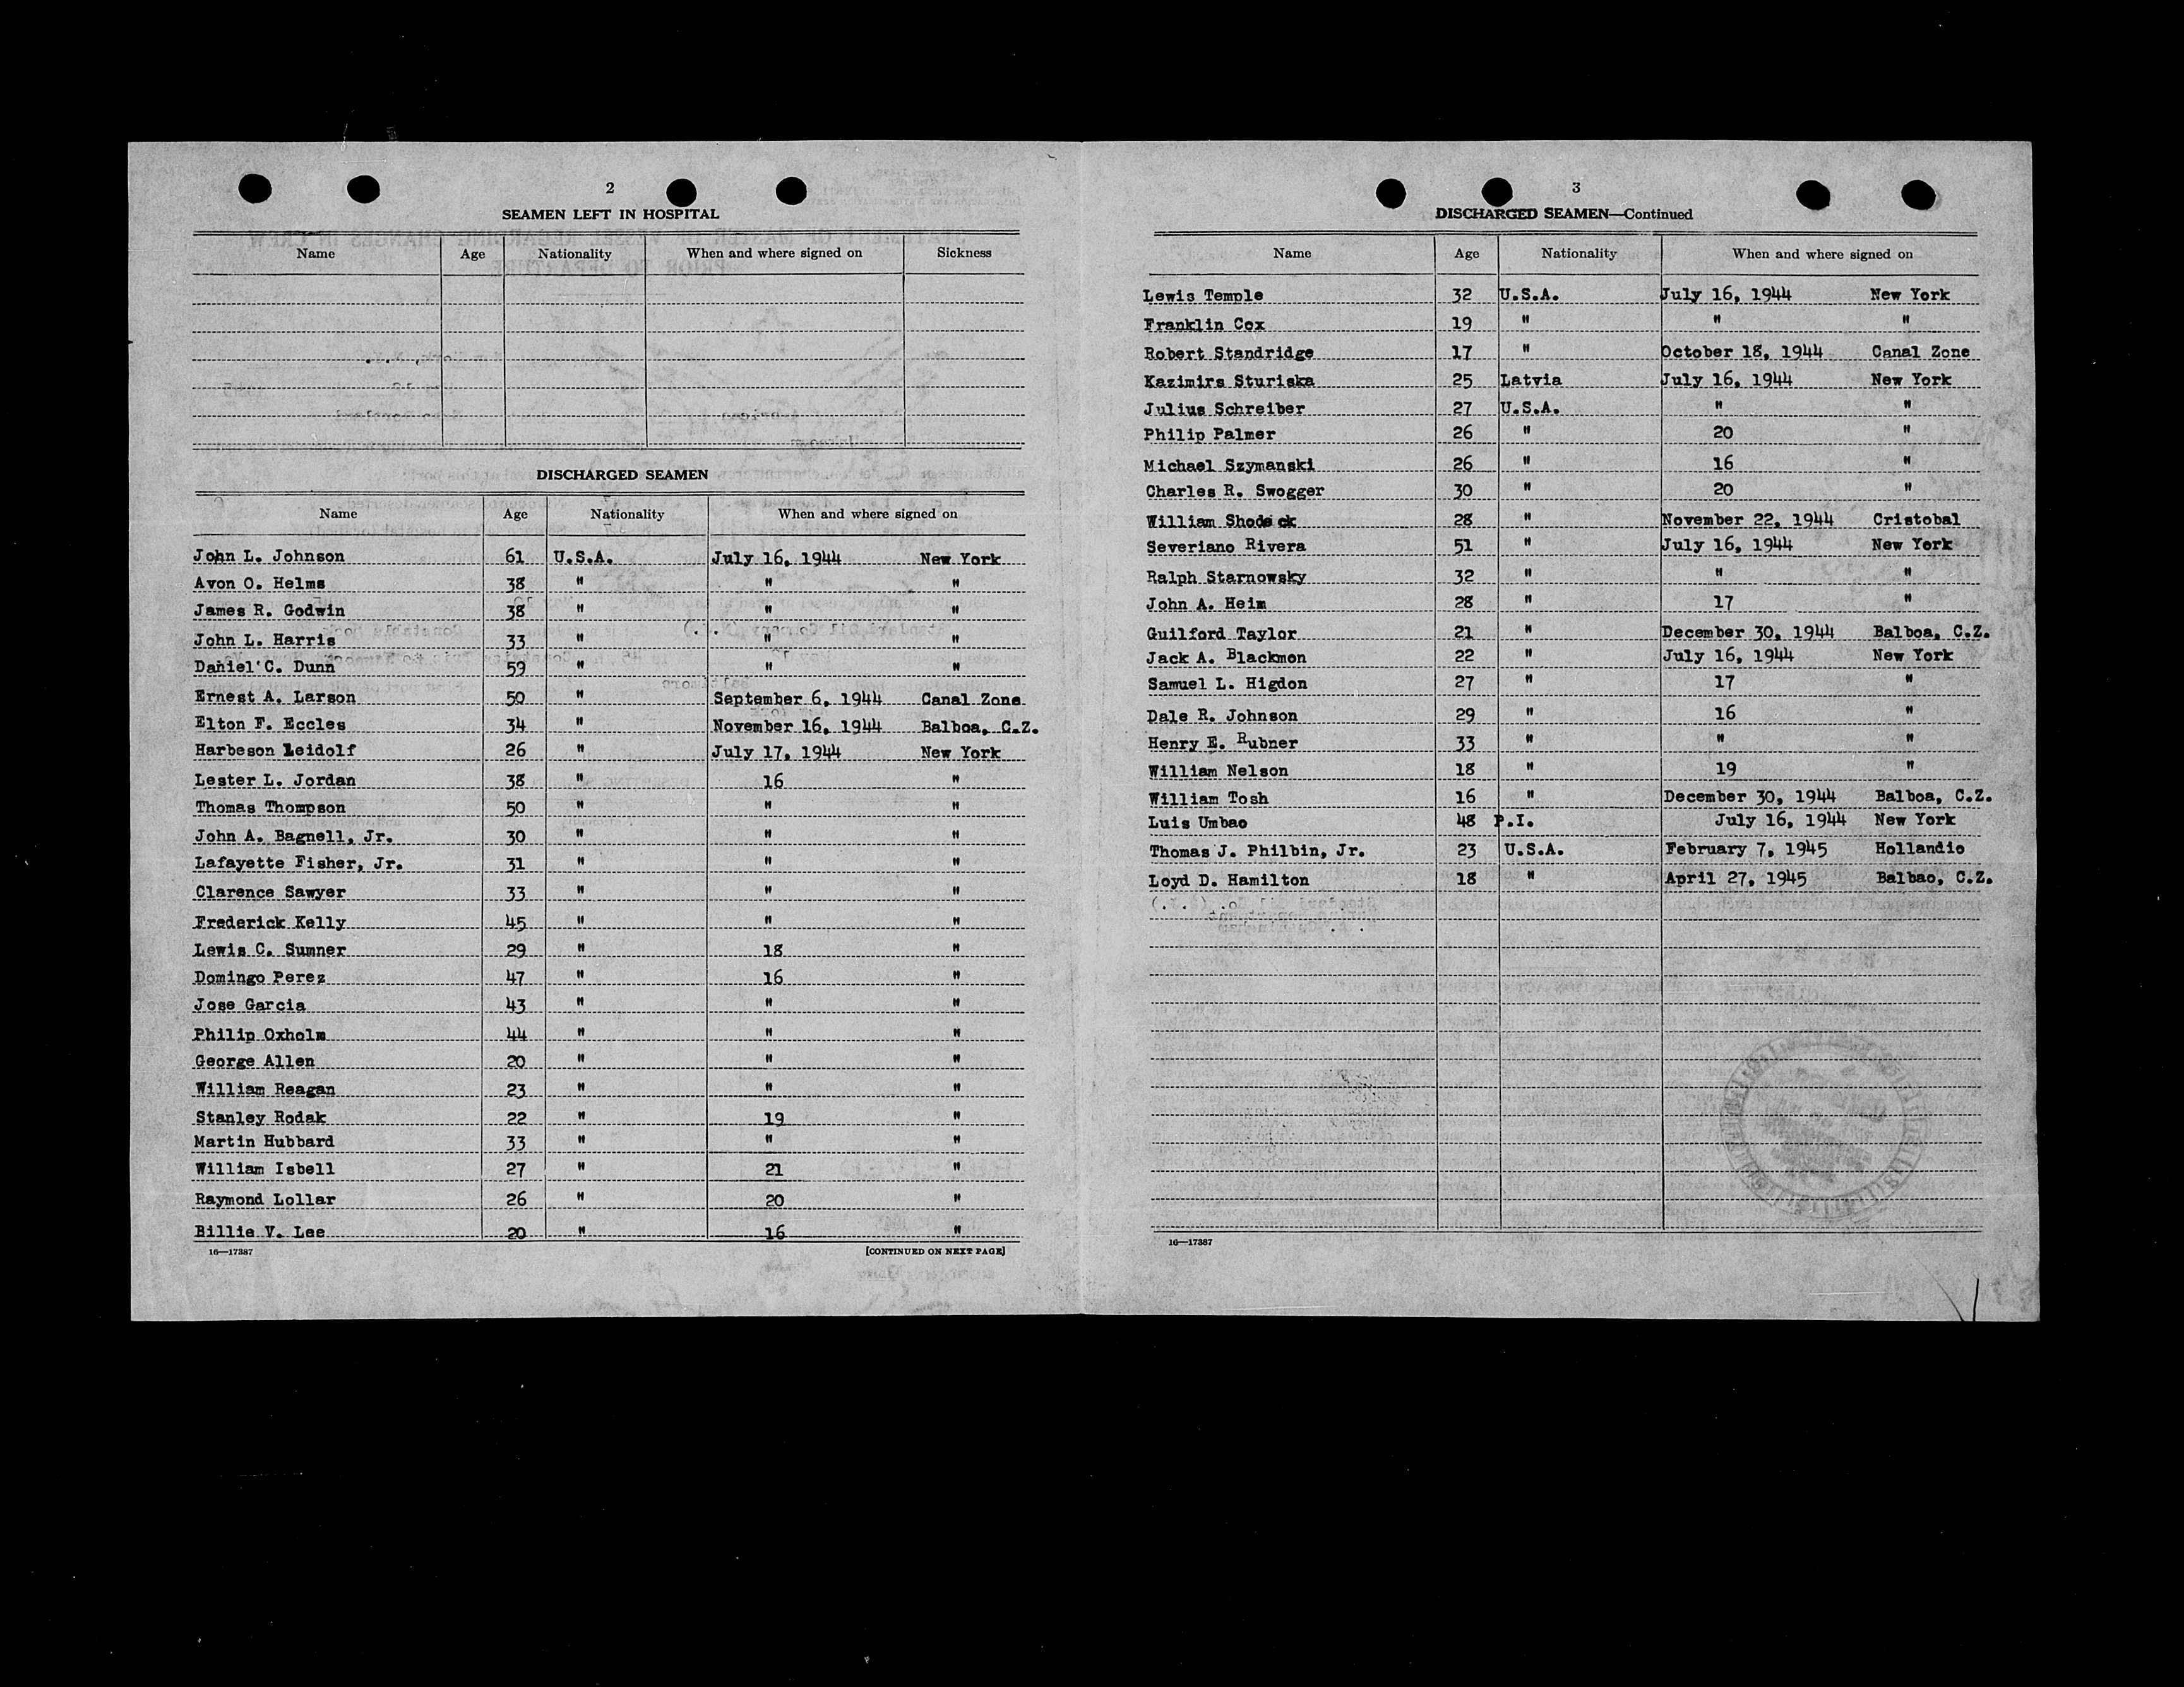 2
SEAMEN LEFT IN HOSPITAL
Name Age Nationality When and where signed on Sickness
DISCHARGED SEAMEN
Name Age Nationality When and where signed on
John L. Johnson 61 U.S.A. July 16, 1944 New York
Avon O. Helms 38 " " "
James R. Godwin 38 " " "
John L. Harris 33 " " "
Daniel C. Dunn 59 " " "
Ernest A. Larson 50 " September 6, 1944 Canal Zone
Elton F. Eccles 34 " November 16, 1944 Balboa, C.Z.
Harbeson Leidolf 26 " July 17, 1944 New York
Lester L. Jordan 38 " 16 "
Thomas Thompson 50 " " "
John A. Bagnell, Jr. 30 " " "
Lafayette Fisher, Jr. 31 " " "
Clarence Sawyer 33 " " "
Frederick Kelly 45 " " "
Lewis C. Sumner 29 " 18 "
Domingo Perez 47 " 16 "
Jose Garcia 43 " " "
Philip Oxholm 44 " " "
George Allen 20 " " "
William Reagan 23 " " "
Stanley Rodak 22 " 19 "
Martin Hubbard 33 " " "
William Isbell 27 " 21 "
Raymond Lollar 26 " 20 "
Billie V. Lee 20 " 16 "
16—17387 [CONTINUED ON NEXT PAGE]
3
DISCHARGED SEAMEN—Continued
Name Age Nationality When and where signed on
Lewis Temple 32 U.S.A. July 16, 1944 New York
Franklin Cox 19 " " "
Robert Standridge 17 " October 18, 1944 Canal Zone
Kazimirs Sturiska 25 Latvia July 16, 1944 New York
Julius Schreiber 27 U.S.A. " "
Philip Palmer 26 " 20 "
Michael Szymanski 26 " 16 "
Charles R. Swogger 30 " 20 "
William 28 " November 22, 1944 Cristobal
Severiano Rivera 51 " July 16, 1944 New York
Ralph Starnowsky 32 " " "
John A. Heim 28 " 17 "
Guilford Taylor 21 " December 30, 1944 Balboa, C.Z.
Jack A. Blackmon 22 " July 16, 1944 New York
Samuel L. Higdon 27 " 17 "
Dale R. Johnson 29 " 16 "
Henry E. Rubner 33 " " "
William Nelson 18 " 19 "
William Tosh 16 " December 30, 1944 Balboa, C.Z.
Luis Umbao 48 P.I. July 16, 1944 New York
Thomas J. Philbin, Jr. 23 U.S.A. February 7, 1945 Hollandio
Loyd D. Hamilton 18 " April 27, 1945 Balbao, C.Z.
16—17387